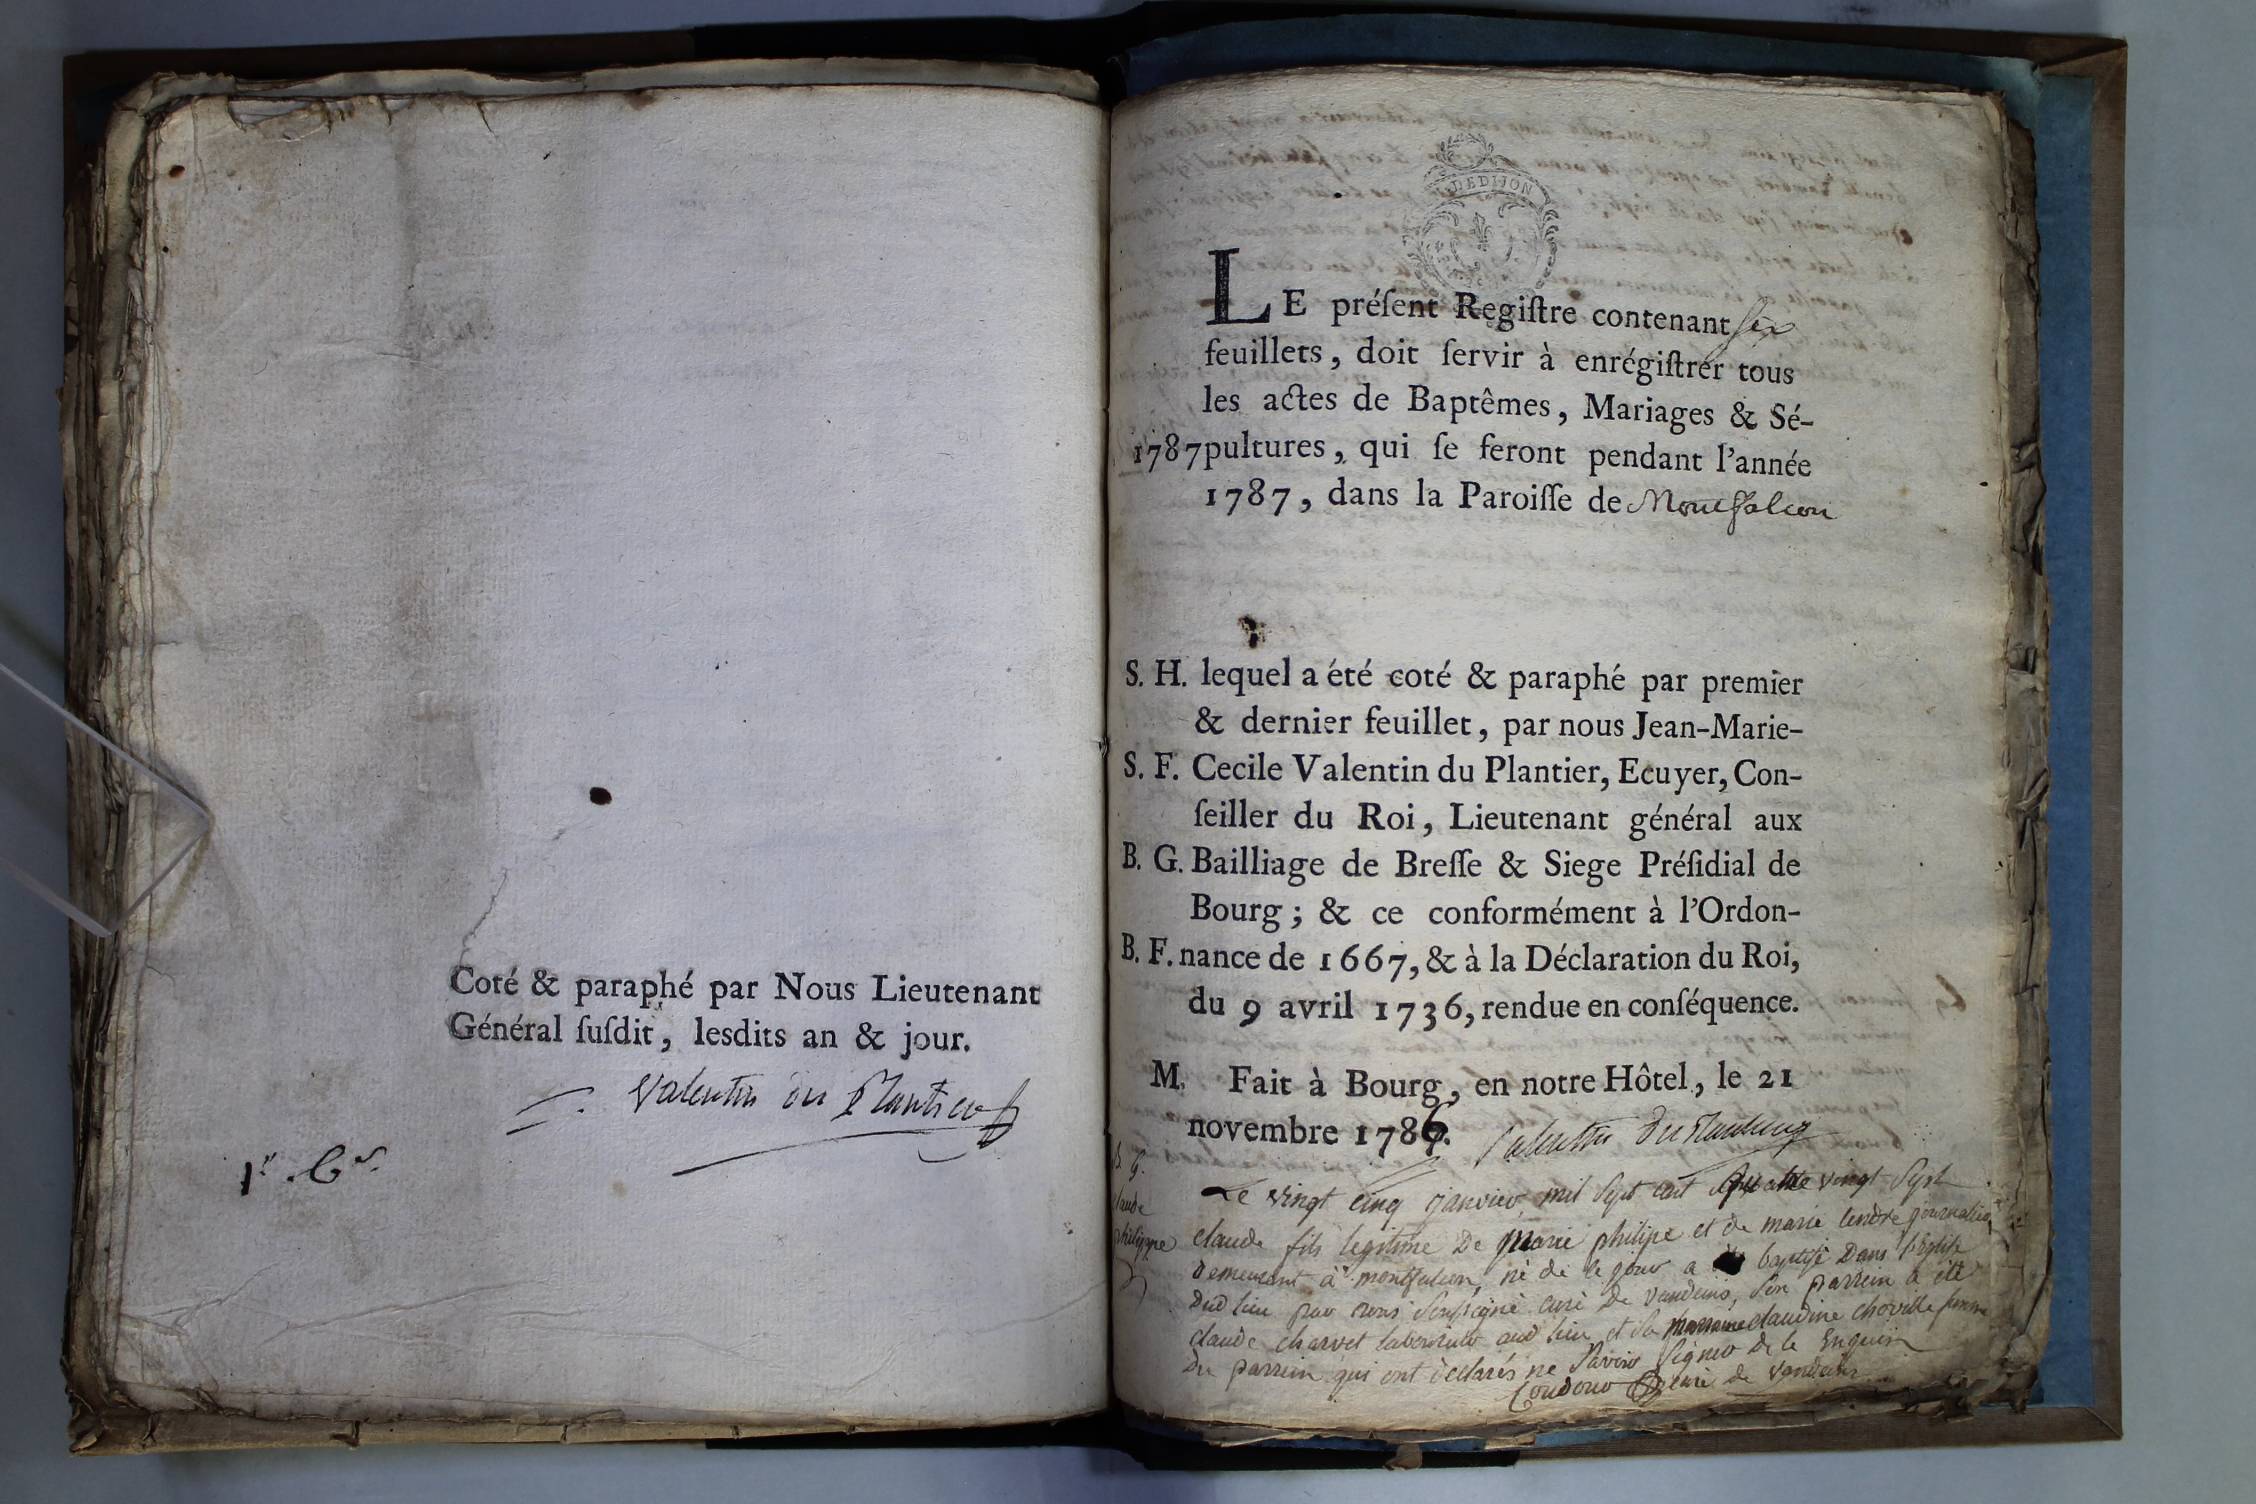 Coté & paraphé par Nous Lieutenant
Général ſuſdit, lesdits an & jour.
Valentin du Plantier
DEDIJON
LE préſent Regiſtre contenant six
feuillets, doit ſervir à enrégiſtrer tous
les actes de Baptêmes, Mariages & Sé-
1787 pultures, qui ſe feront pendant l'année
1787, dans la Paroiſſe de Montfalcon
S. H. lequel a été coté & paraphé par premier
& dernier feuillet, par nous Jean-Marie-
S. F. Cecile Valentin du Plantier, Ecuyer, Con-
ſeiller du Roi, Lieutenant général aux
B. G. Bailliage de Breſſe & Siege Préſidial de
Bourg; & ce conformément à l'Ordon-
B. F. nance de 1667, & à la Déclaration du Roi,
du 9 avril 1736, rendue en conſéquence.
M. Fait à Bourg, en notre Hôtel, le 21
novembre 1786. Valentin du Plantier
B. G.
claude
philippe
Le vingt cinq janvier mil sept cent quatre vingt sept
claude fils legitime de marie philipe et de marie tendre journalier
demeurant à montfalcon, né de ce jour a été baptisé dans l'église
dud lieu par nous soussigné curé de vandeins, son parrein a été
claude charvet laboureur aud lieu et sa marraine claudine choville femme
du parrein qui ont déclarés ne savoir signer de ce enquis
Coudour curé de vandeins